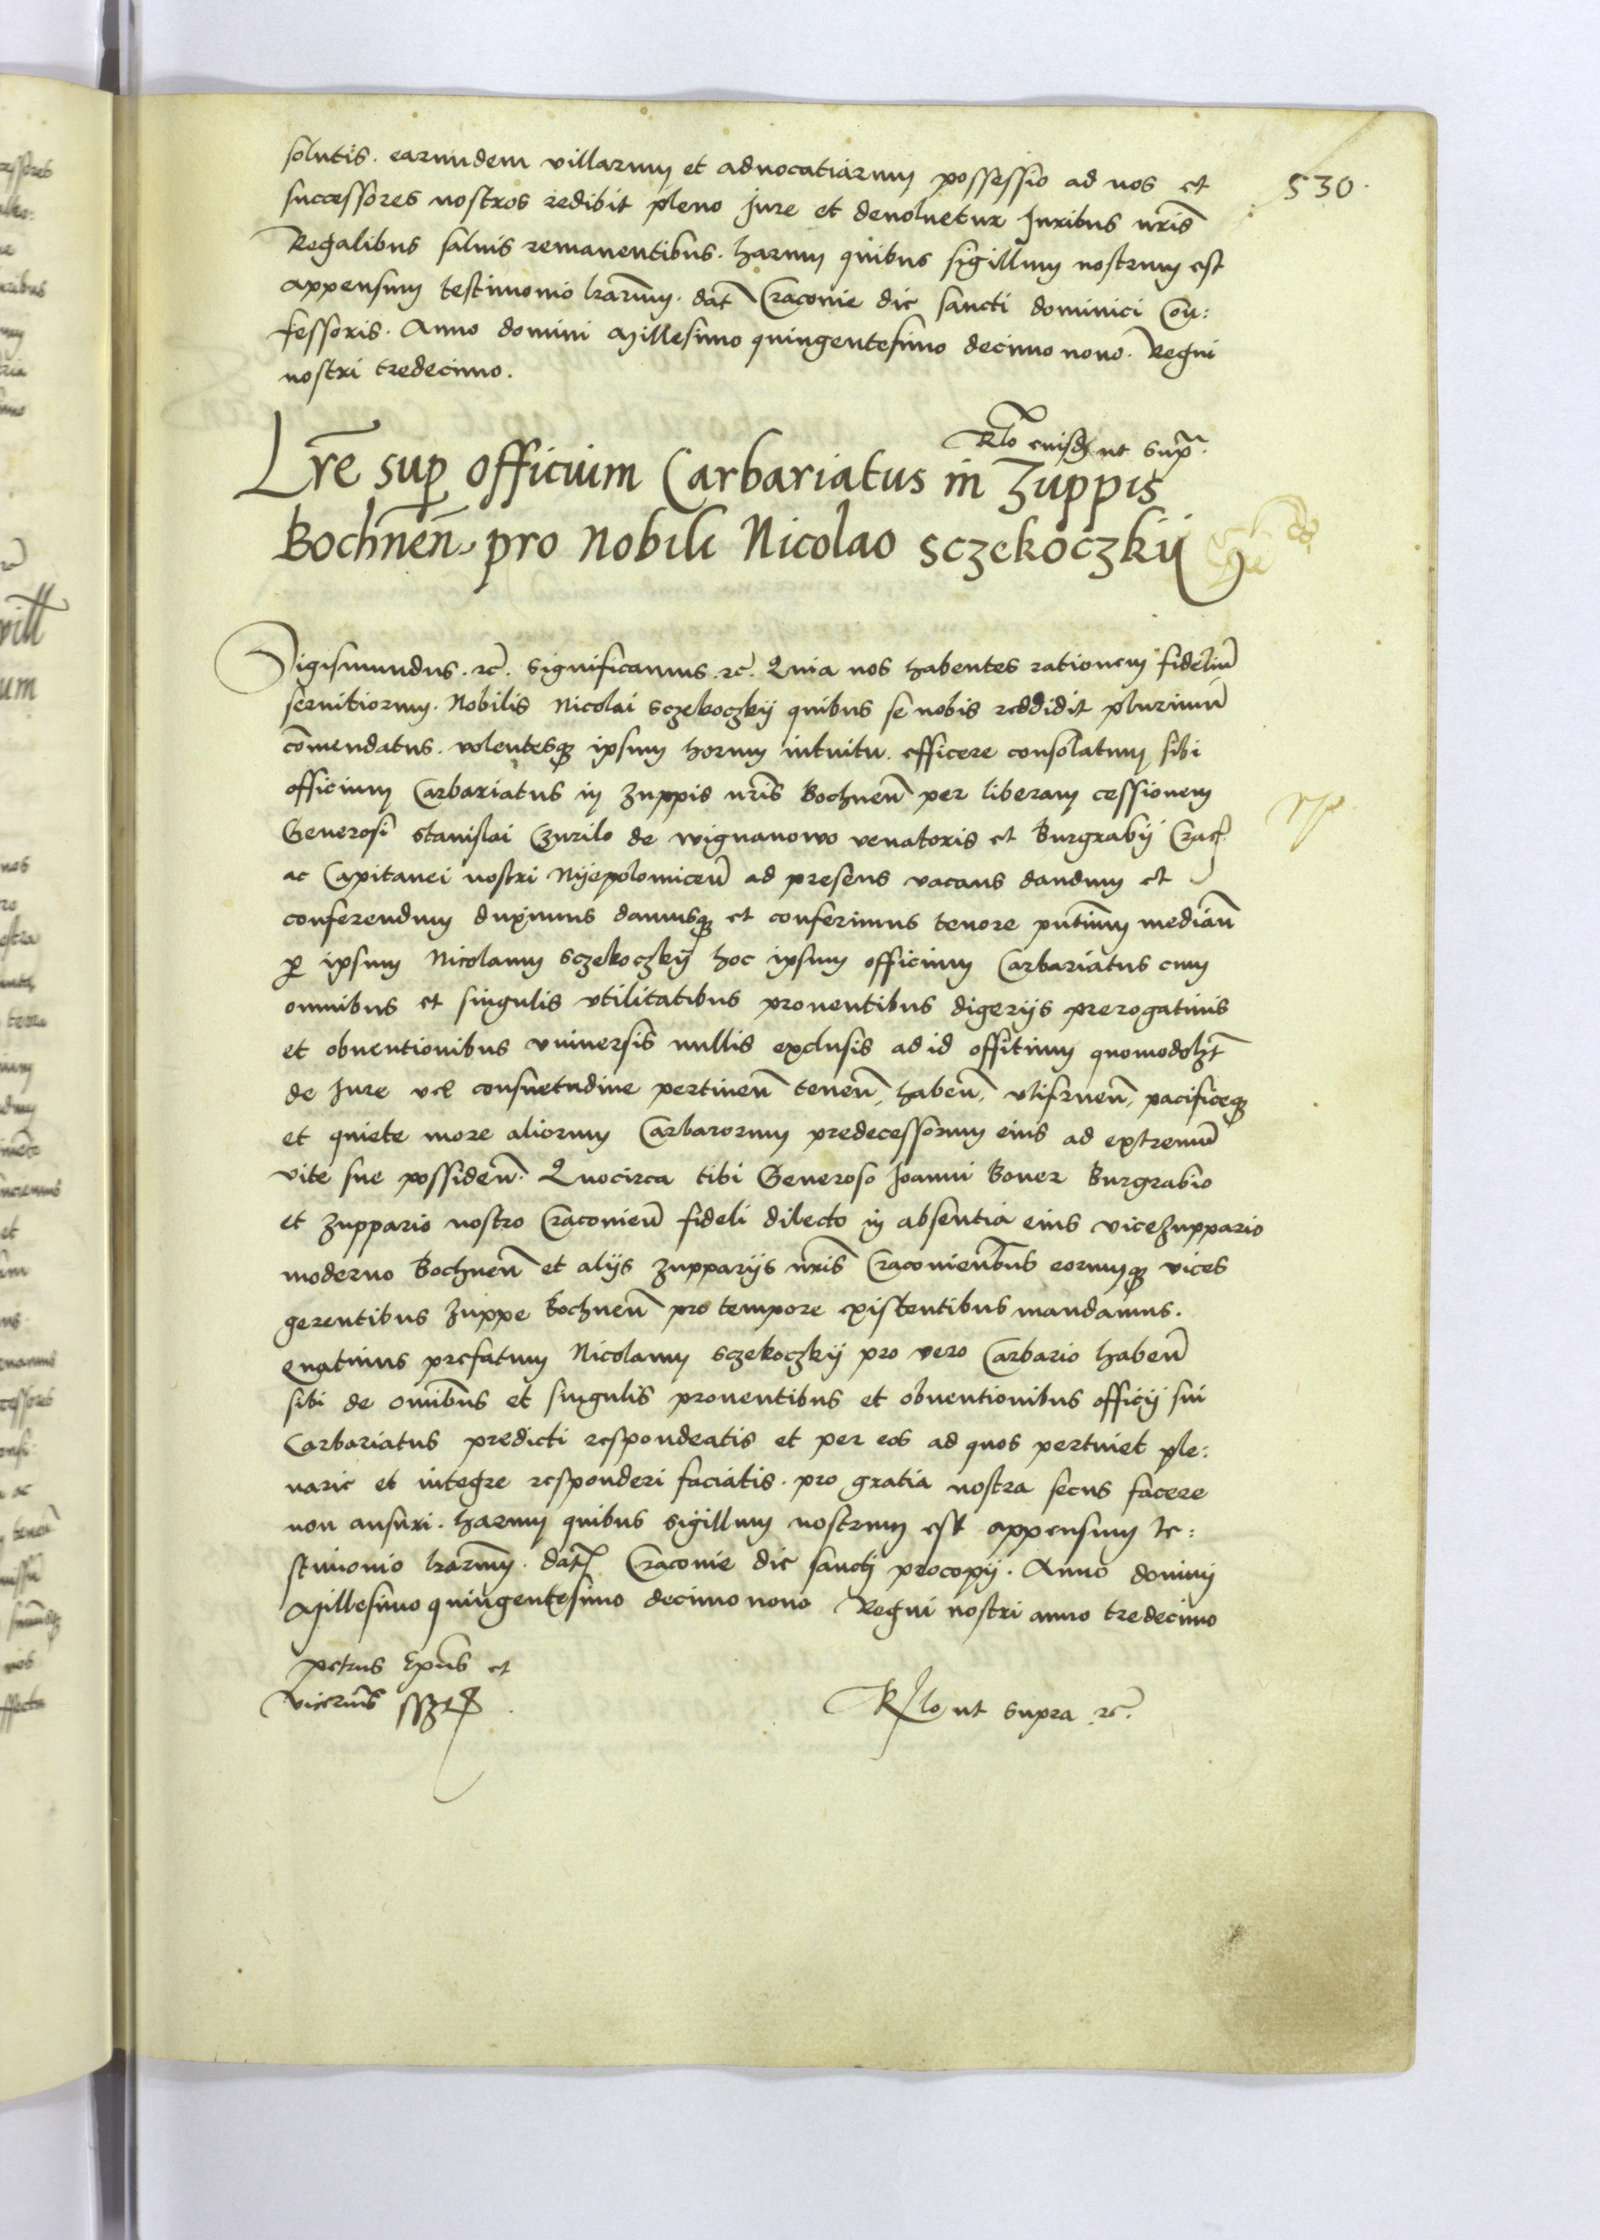 530.
solutis. earundem villarum et advocatiarum possessio ad nos et
successores nostros redibit pleno Jure et devoluetur Juribus nr̄is
Regalibus saluis remanentibus. harum quibus sigillum nostrum est
appensum testimonio lr̄arum. dat̄ Cracovie die sancti dominici Con:
fessoris. Anno domini Millesimo quingentesimo decimo nono. Regni
nostri tredecimo.
Rlo eiusdē ut supra.
Lr̄e sup officium Carbariatus in Zuppis
Bochnen̄. pro Nobili Nicolao sczekoczkij
Sigismundus. rc̄. significamus. rc̄. Quia nos habentes rationem fideliū
seruitiorum. Nobilis Nicolai sczekoczkij quibus se nobis reddidit plurimū
cōmendatus. volentesq ipsum horum intuitu. efficere consolatum, sibi
officium Carbariatus in zuppis nr̄is Bochnen̄ per liberam cessionem
Generosi stanislai Czurilo de wignanowo venatoris et Burgrabij Crac̄
ac Capitanei nostri Nijepolomicen̄ ad presens vacans dandum et
conferendum duximus damusq et conferimus tenore pn̄tium median̄
p ipsum Nicolaum sczekoczkij hoc ipsum officium Carbariatus cum
omnibus et singulis vtilitatibus prouentibus digerijs prerogatiuis
et obuentionibus vniuersis nullis exclusis ad id offitium quomodolzt̄
de Jure vel consuetudine pertinen̄ tenen̄, haben̄, vtifruen̄, pacificeq
et quiete more aliorum Carbarorum predecessorum eius ad extremū
vite sue possiden̄. Quocirca tibi Generoso Joanni Boner Burgrabio
et zuppario nostro Cracovien̄ fideli dilecto in absentia eius vicezuppario
moderno Bochnen̄ et alijs zupparijs nr̄is Cracovien̄bus eorumq vices
gerentibus zuppe Bochnen̄ pro tempore existentibus mandamus.
quatinus prefatum Nicolaum sczekoczkij pro vero Carbario haben̄
sibi de om̄ibus et singulis prouentibus et obuentionibus officij sui
Carbariatus predicti respondeatis et per eos ad quos pertinet ple:
narie et integre responderi faciatis. pro gratia nostra secus facere
non ausuri. harum quibus sigillum nostrum est appensum te:
stimonio lr̄arum. dat̄ Cracovie die sancti procopij. Anno domini
Millesimo quingentesimo decimo nono Regni nostri anno tredecimo
petrus Ep̄us et
vicecan̄s sszt
Rlo ut supra rc̄.